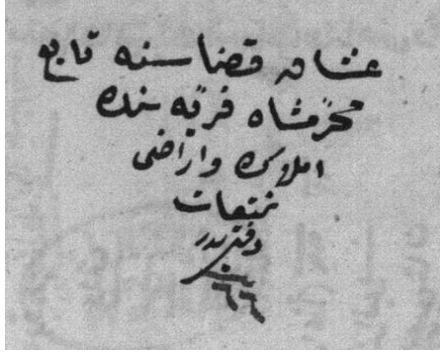 عشاق قضاسنه تابع
محرمشاه قريه سنده
املاك واراضى
تمتعات
دفتريدر
سنه
٦٦